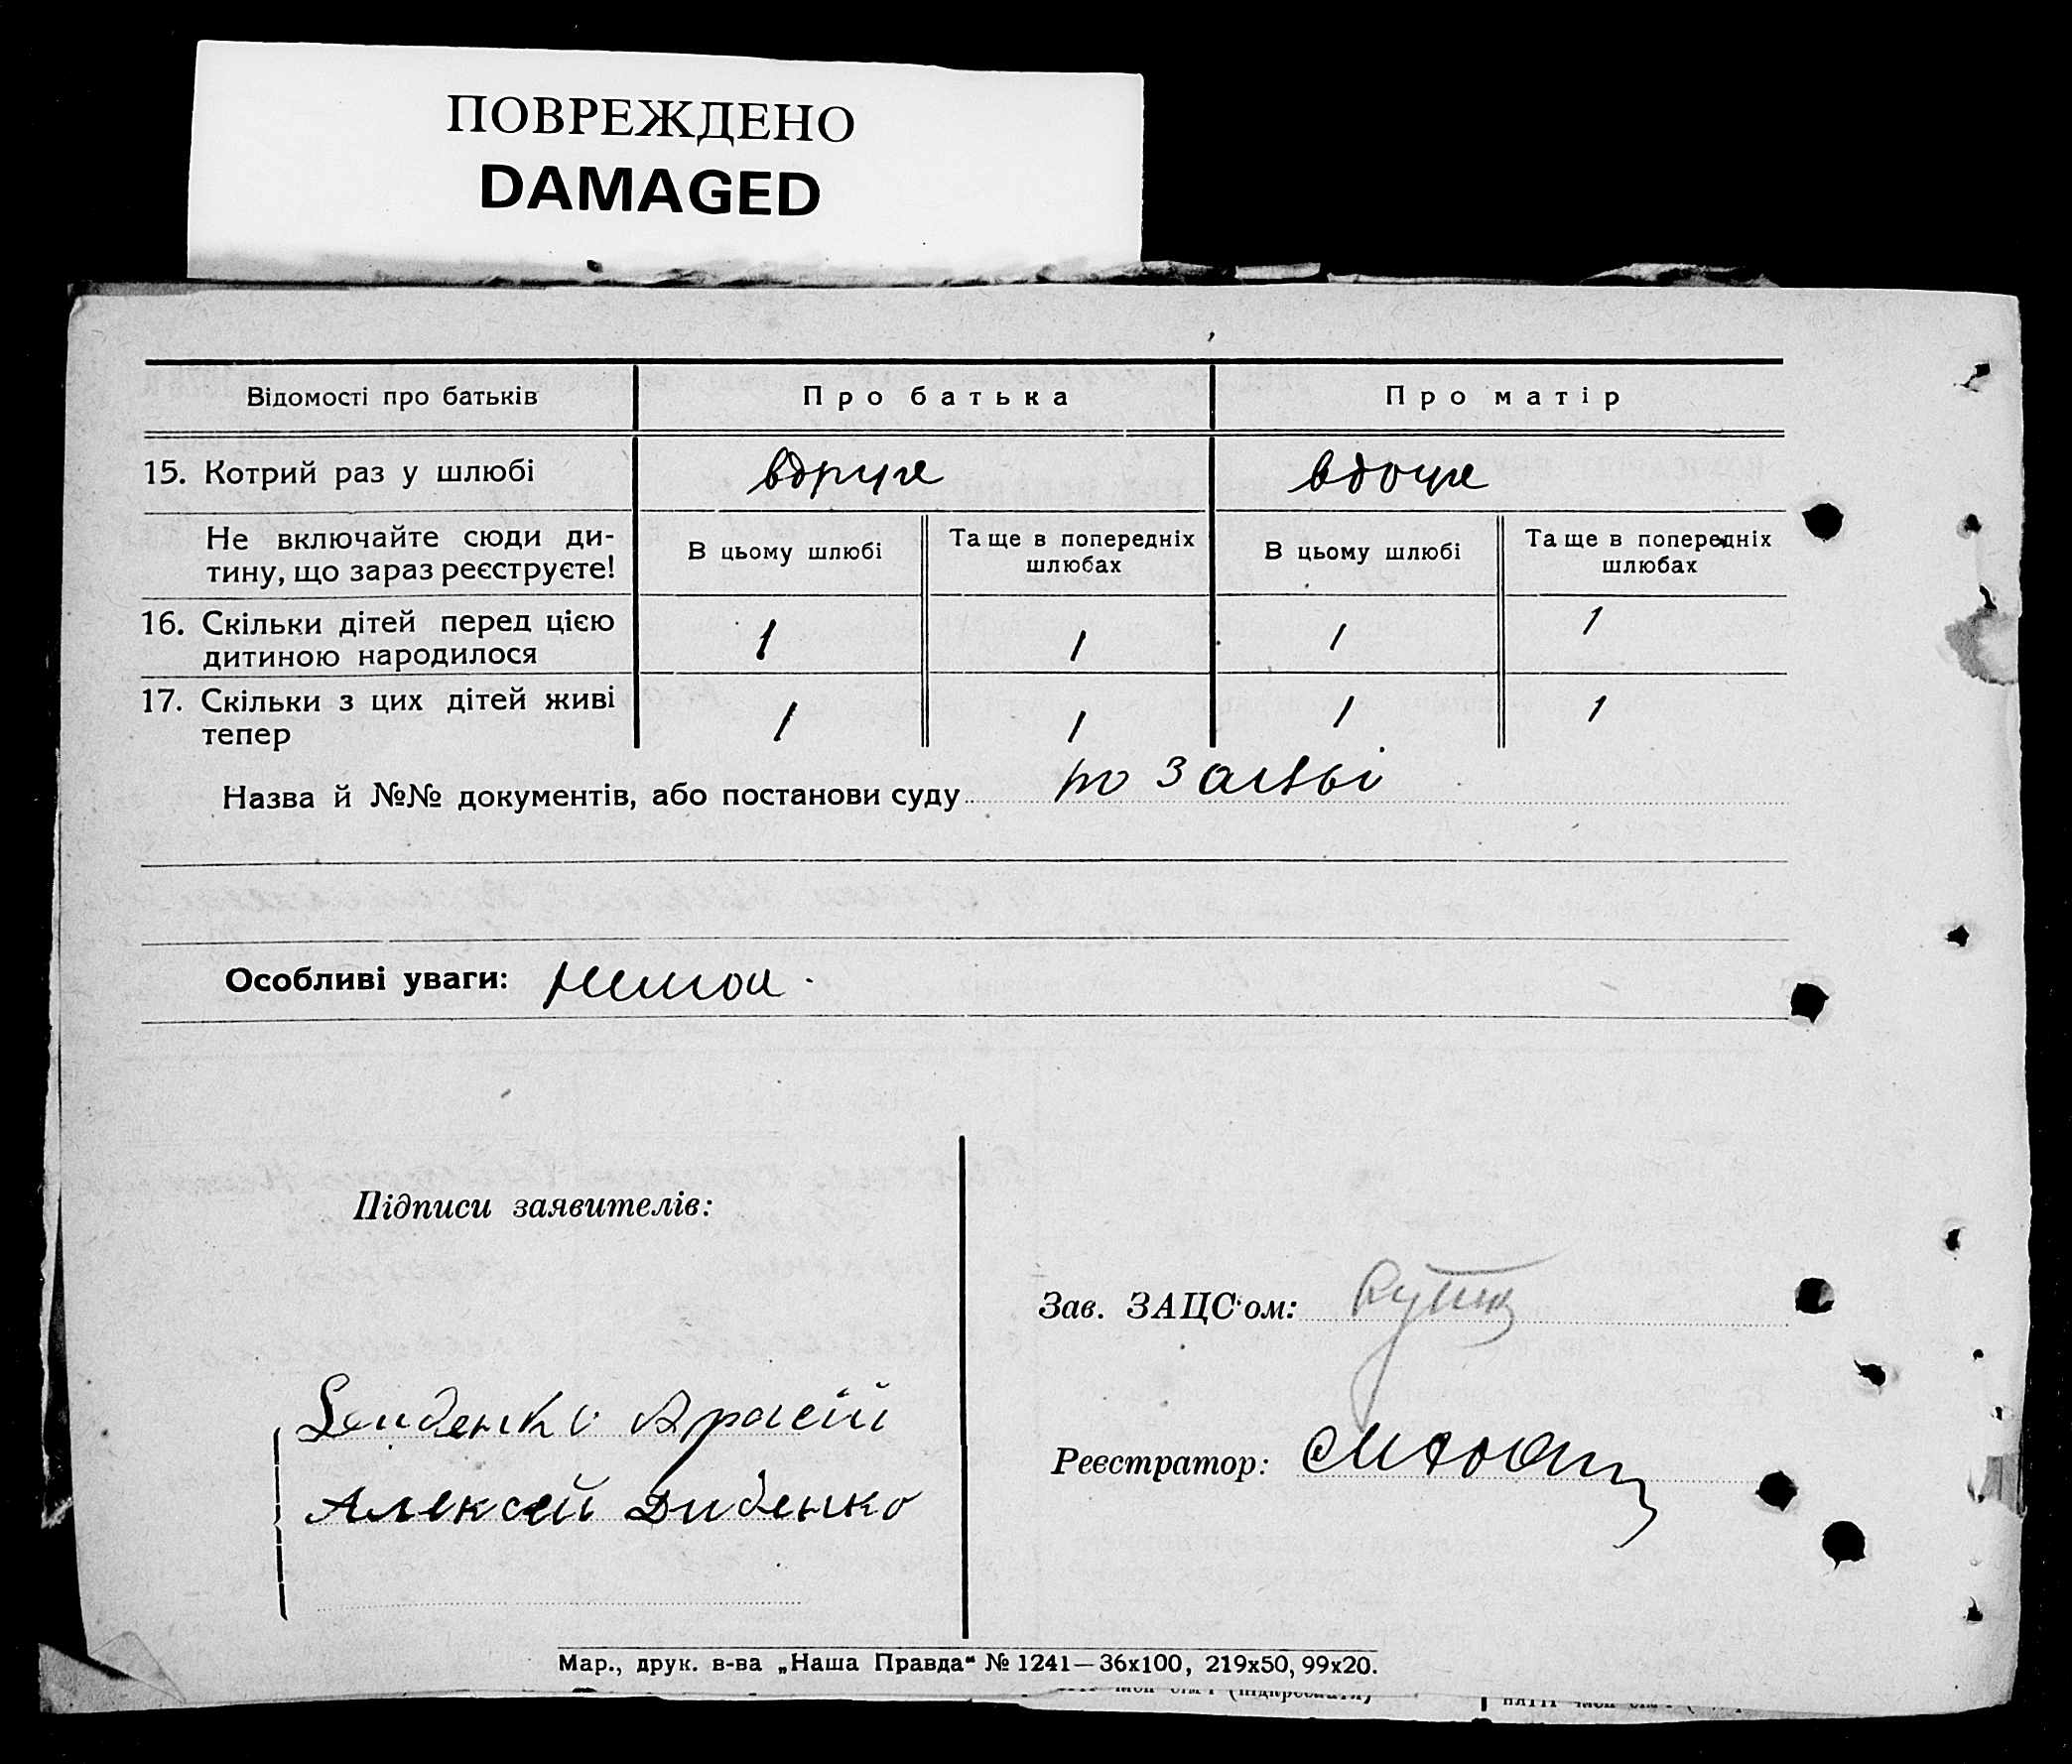 ПОВРЕЖДЕНО
DAMAGED
Відомості про батьків
Про батька
Про матір
15. Котрий раз у шлюбі
вдруге
вдруге
Не включайте сюди ди-
тину, що зараз реєструєте!
В цьому шлюбі
Та ще в попередніх
шлюбах
В цьому шлюбі
Та ще в попередніх
шлюбах
16. Скільки дітей перед цією
дитиною народилося
1
1
1
1
17. Скільки з цих дітей живі
тепер
1
1
1
1
Назва й №№ документів, або постанови суду по заяві
Особливі уваги: немає
Підписи заявителів:
Зав. ЗАЦС'ом:
Диденко
Реєстратор:
Алексей Диденко
Мар., друк. в-ва „Наша Правда“ № 1241—36х100, 219х50, 99х20.